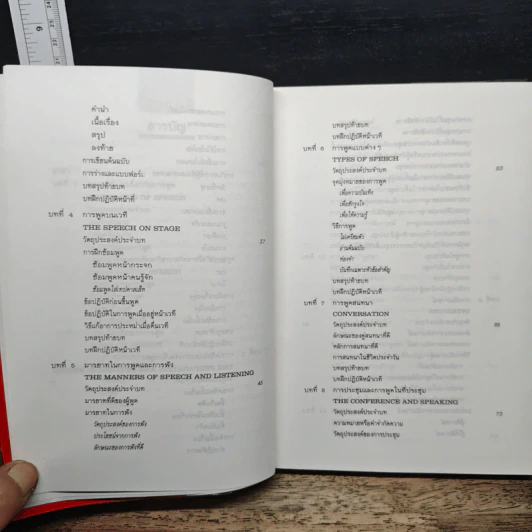 คำนำ
เนื้อเรื่อง
สรุป
ลงท้าย
การเขียนต้นฉบับ
การร่างและแบบฟอร์ม
บทสรุปท้ายบท
บทฝึกปฏิบัติหน้าที่
บทที่ 4 การพูดบนเวที
THE SPEECH ON STAGE
วัตถุประสงค์ประจำบท 37
การฝึกซ้อมพูด
ซ้อมพูดหน้ากระจก
ซ้อมพูดหน้าคนรู้จัก
ซ้อมพูดใส่เทปคาสเส็ท
ข้อปฏิบัติก่อนขึ้นพูด
ข้อปฏิบัติในการพูดเมื่ออยู่หน้าเวที
วิธีแก้อาการประหม่าเมื่อตื่นเวที
บทสรุปท้ายบท
บทฝึกปฏิบัติหน้าเวที
บทที่ 5 มารยาทในการพูดและการฟัง
THE MANNERS OF SPEECH AND LISTENING
วัตถุประสงค์ประจำบท 45
มารยาทที่ดีของผู้พูด
มารยาทในการฟัง
วัตถุประสงค์ของการฟัง
ประโยชน์จากการฟัง
ลักษณะของการฟังที่ดี
บทสรุปท้ายบท
บทฝึกปฏิบัติหน้าเวที
บทที่ 6 การพูดแบบต่าง ๆ
TYPES OF SPEECH
วัตถุประสงค์ประจำบท 53
จุดมุ่งหมายของการพูด
เพื่อความบันเทิง
เพื่อชักจูงใจ
เพื่อให้ความรู้
วิธีการพูด
ไม่เตรียมตัว
อ่านต้นฉบับ
ท่องจำ
บันทึกเฉพาะหัวข้อสำคัญ
บทสรุปท้ายบท
บทฝึกปฏิบัติหน้าเวที
บทที่ 7 การพูดสนทนา
CONVERSATION
วัตถุประสงค์ประจำบท
ลักษณะของคู่สนทนาที่ดี
หลักการสนทนาที่ดี
การสนทนาในชีวิตประจำวัน
บทสรุปท้ายบท
บทฝึกปฏิบัติหน้าเวที
บทที่ 8 การประชุมและการพูดในที่ประชุม
THE CONFERENCE AND SPEAKING
วัตถุประสงค์ประจำบท 73
ความหมายหรือคำจำกัดความ
วัตถุประสงค์ของการประชุม